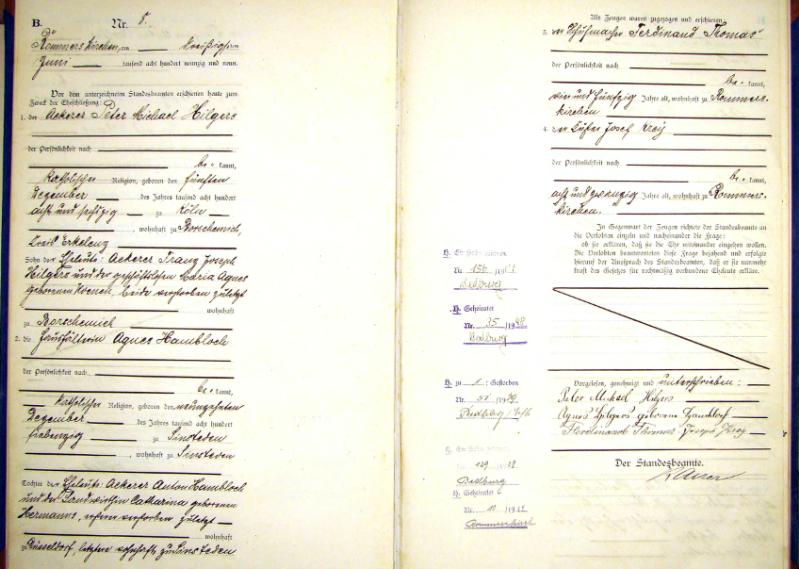 B.
Nr. 5.
Rommerskirchen, am dreißigsten
Juni tausend acht hundert neunzig und neun.
Vor dem unterzeichneten Standesbeamten erschienen heute zum
Zweck der Eheschließung:
1. der Ackerer Peter Michael Hilgers
der Persönlichkeit nach
be kannt,
katholischer Religion, geboren den fünften
Dezember des Jahres tausend acht hundert
acht und sechzig zu Köln
, wohnhaft zu Borschemich,
Kreis Erkelenz
Sohn der Eheleute: Ackerer Franz Joseph
Hilgers und der geschäftslosen Maria Agnes
geborenen Koenen, beide verstorben zuletzt
wohnhaft
zu Borschemich
2. die Haushälterin Agnes Hambloch
der Persönlichkeit nach
be kannt,
katholischer Religion, geboren den neunzehnten
Dezember des Jahres tausend acht hundert
siebenzig zu Sinsteden
, wohnhaft zu Sinsteden
Tochter der Eheleute: Ackerer Anton Hambloch
und der Landwirthin Catharina geborenen
Hermanns, ersterer verstorben zuletzt
wohnhaft
zu Düsseldorf, letztere wohnhaft zu Sinsteden
Als Zeugen waren zugezogen und erschienen:
3. der Schuhmacher Ferdinand Thomas
der Persönlichkeit nach
be kannt,
vier und fünfzig Jahre alt, wohnhaft zu Rommers-
kirchen
4. der Küfer Josef
der Persönlichkeit nach
be kannt,
acht und zwanzig Jahre alt, wohnhaft zu Rommers-
kirchen.
In Gegenwart der Zeugen richtete der Standesbeamte an
die Verlobten einzeln und nacheinander die Frage:
ob sie erklären, daß sie die Ehe miteinander eingehen wollen.
Die Verlobten beantworteten diese Frage bejahend und erfolgte
hierauf der Ausspruch des Standesbeamten, daß er sie nunmehr
kraft des Gesetzes für rechtmäßig verbundene Eheleute erkläre.
Nr.
Bedburg
H. Geheiratet
Nr. 35/19
Bedburg
H. zu 1: Gestorben
Nr.
Bedburg
Nr. 129
Bedburg
H. Geheiratet
Nr.
Vorgelesen, genehmigt und unterschrieben:
Peter Michael Hilgers
Agnes Hilgers geborene Hambloch
Ferdinand Thomas Joseph
Der Standesbeamte.